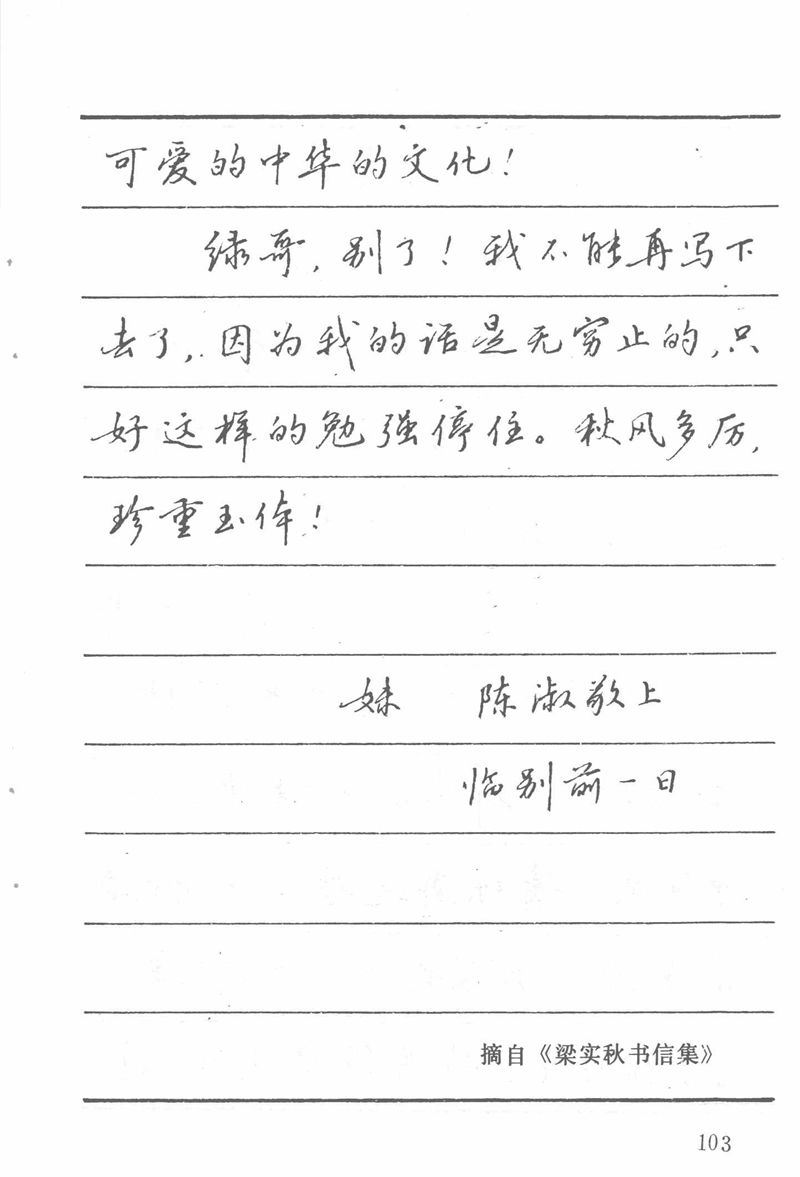 可爱的中华的文化！
绿哥，别了！我不能再写下
去了，因为我的话是无穷止的，只
好这样的勉强停住。秋风多厉，
珍重玉体！
妹 陈淑敬上
临别前一日
摘自《梁实秋书信集》
103